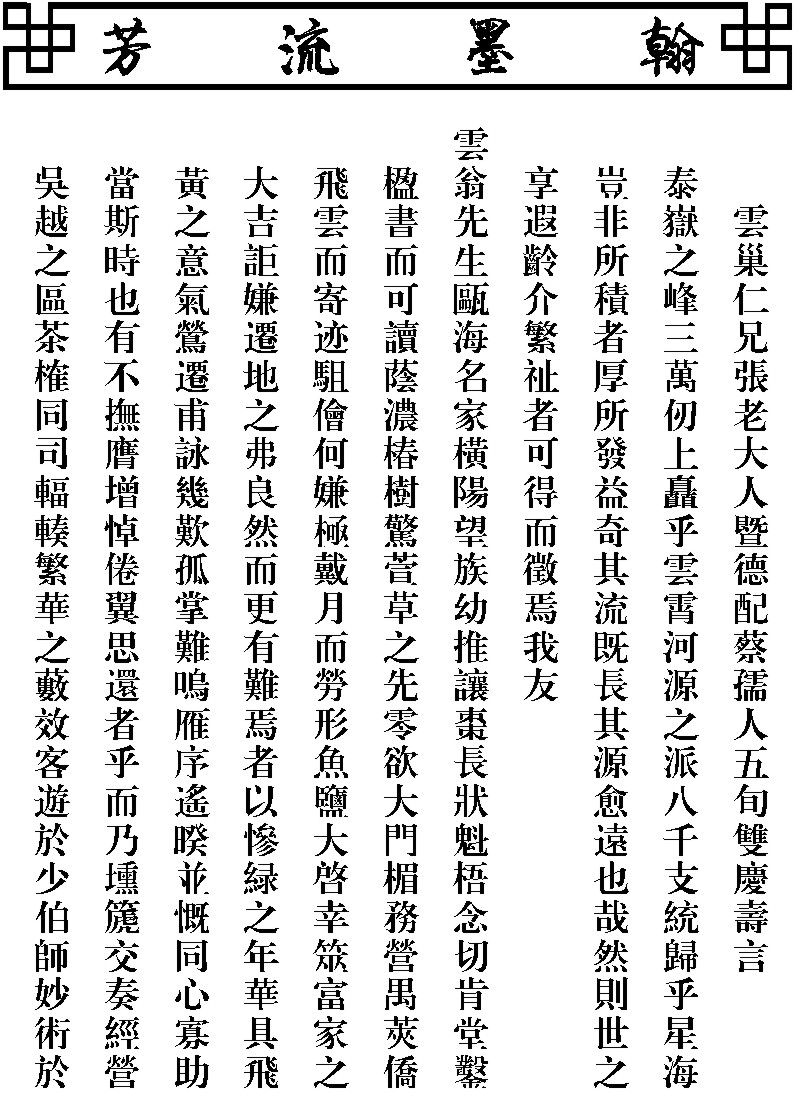 翰墨流芳
雲巢仁兄張老大人暨德配蔡孺人五旬雙慶壽言
泰嶽之峰三萬仞上矗乎雲霄河源之派八千支統歸乎星海
豈非所積者厚所發益奇其流既長其源愈遠也哉然則世之
享遐齡介繁祉者可得而徵焉我友
雲翁先生甌海名家橫陽望族幼推讓棗長狀魁梧念切肯堂鑿
楹書而可讀蔭濃椿樹驚萱草之先零欲大門楣務營禺莢僑
飛雲而寄迹駔儈何嫌極戴月而勞形魚鹽大啓幸筮富家之
大吉詎嫌遷地之弗良然而更有難焉者以慘緑之年華具飛
黃之意氣鶯遷甫詠幾歎孤掌難鳴雁序遙暌並慨同心寡助
當斯時也有不撫膺增悼倦翼思還者乎而乃壎篪交奏經營
吳越之區茶榷同司輻輳繁華之藪效客遊於少伯師妙術於